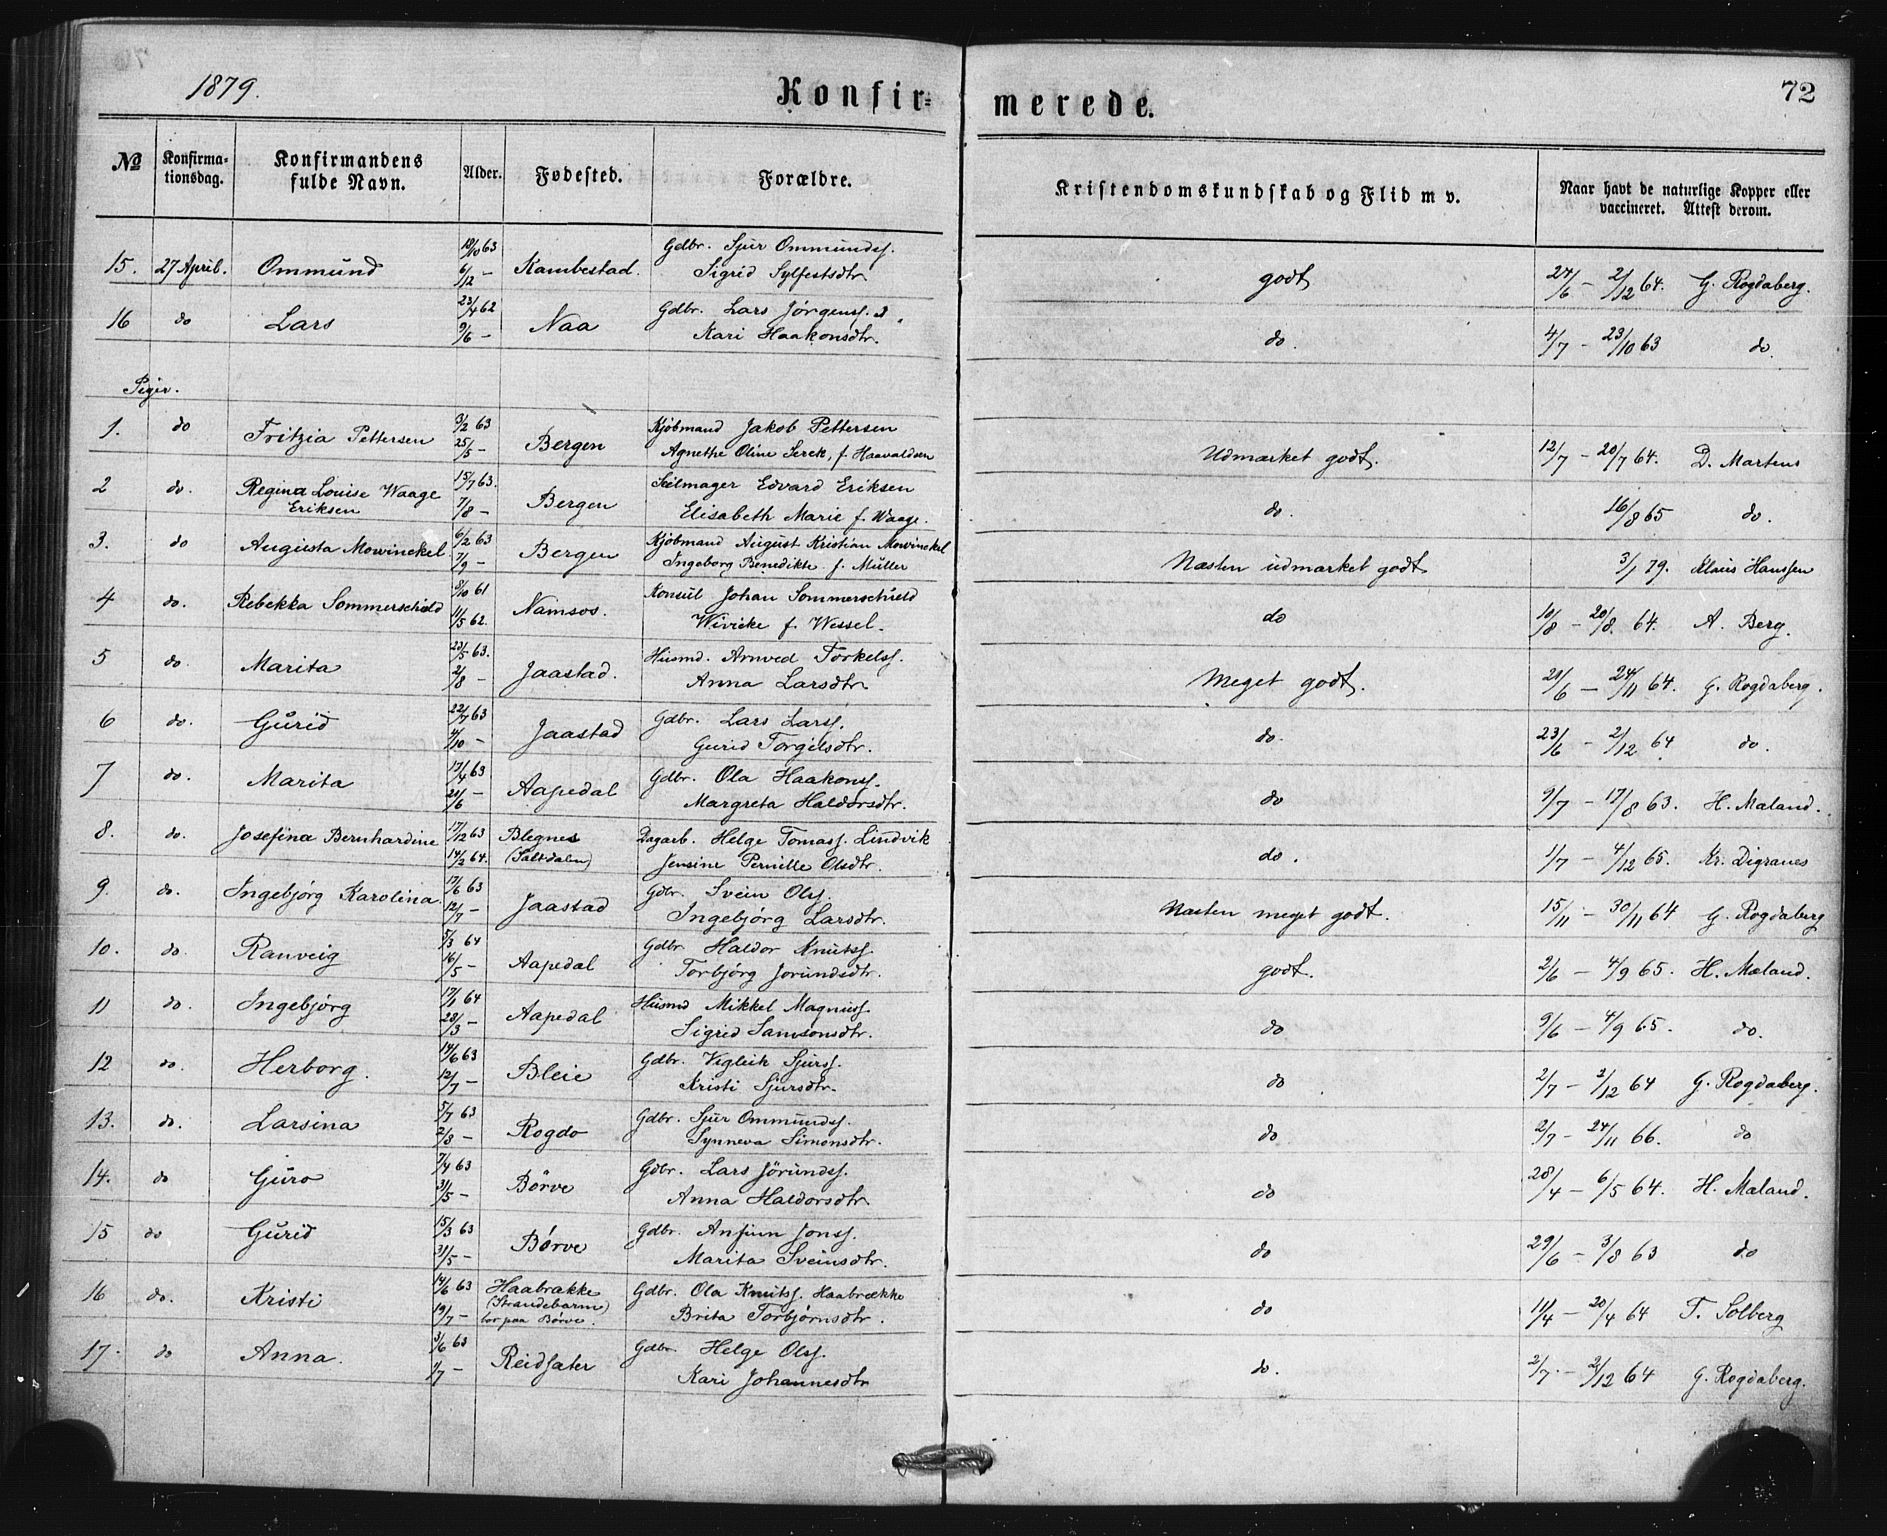 1879.
Konfir= merede.
72
No Konfirma-tionsdag. Konfirmandens fulde Navn. Alder. Fødested. Forældre. Kristendomskundskab og Flid m v. Naar havt de naturlige Kopper eller vaccineret. Attest derom.
15. 27 April. Ommund 18/10 63 6/12 — Kambestad. Gdbr. Sjur Ommundsf. Sigrid Sylfestsdtr. godt 24/6 — 2/12 64. G. Rogdaberg.
16 do Lars 23/4 62 9/6 — Naa Gdbr. Lars Jørgensf. Kari Haakonsdtr. do. 4/7 — 23/10 63 do.
Piger.
1. do Fritzia Pettersen 3/2 63 25/5 — Bergen Kjøbmand Jakob Pettersen Agnethe Oline Serck, f. Haavaldsen Udmærket godt. 12/7 — 20/7 64. D. Martens
2 do. Regina Louise Waage Eriksen 15/7 63. 7/8 — Bergen Seilmager Edvard Eriksen Elisabeth Marie f. Waage. do. 16/8 65 do.
3. do Augusta Mowinckel 6/2 63 7/9 — Bergen Kjøbmand August Kristian Mowinckel Ingeborg Benedikte f. Müller Næsten udmærket godt 3/1 79. Klaus Hansen
4 do. Rebekka Sommerschield 8/10 61 11/5 62. Namsos. Konsul Johan Sommerschield Wivicke f. Wessel. do 10/8 — 20/8. 64. A. Berg.
5 do. Marita 23/5 63. 2/8 — Jaastad. Husmd. Arnved Torkelsf. Anna Larsdtr. Meget godt. 21/6 — 24/11 64. G. Rogdaberg.
6 do. Gurid 22/7 63 4/10 — Jaastad Gdbr. Lars Larsf. Gurid Torgilsdtr. do. 23/6 — 2/12 64 do.
7 do. Marita 13/4 63 21/6 — Aapedal Gdbr. Ola Haakonsf. Margreta Haldorsdtr. do 9/7 — 17/8 63. H. Mæland.
8. do. Josefina Bernhardine 17/12 63 14/2 64. Blegnes (Saltdalen) Dagarb. Helge Tomasf. Lindvik Jensine Pernille Olsdtr. do. 1/7 — 4/12 65. Kr. Digranes
9. do. Ingebjørg Karolina 17/6 63 12/7 — Jaastad Gdbr. Svein Olsf. Ingebjørg Larsdtr. Næsten meget godt. 15/11 — 30/11 64 G. Rogdaberg
10. do. Ranveig 5/3 64 16/5 — Aapedal Gdbr. Haldor Knutsf. Torbjørg Jorundsdtr. godt. 2/6 — 4/9 65. H. Mæland.
11 do. Ingebjørg 17/1 64 28/3 — Aapedal Husmd Mikkel Magnusf. Sigrid Samsonsdtr. do 9/6 — 4/9 65. do.
12 do. Herborg. 14/6 63 12/7 — Bleie Gdbr. Vigleik Sjursf. Kristi Sjursdtr. do 2/7 — 2/12 64 G. Rogdaberg.
13. do. Larsina 5/7 63 2/8 — Rogdo Gdbr. Sjur Ommundsf. Synneva Simonsdtr. do 2/7 — 24/11 66. do
14. do Guro 7/4 63 31/5 — Børve Gdbr. Lars Jörundsf. Anna Haldorsdtr do 28/4 — 6/5 64. H. Mæland.
15 do Gurid 15/3 63 31/5 — Børve Gdbr. Anfinn Jonsf. Marita Sveinsdtr. do 29/6 — 3/8 63 do
16 do. Kristi 14/6 63 19/7 — Haabrække (Strandebarm) bor paa Børve. Gdbr. Ola Knutsf. Haabrække Brita Torbjørnsdtr. do 11/4 — 20/4 64 T. Solberg
17. do Anna. 3/6 63 1/7 — Reidsæter Gdbr. Helge Olsf. Kari Johannesdtr do. 2/7. — 2/12 64 G. Rogdaberg.